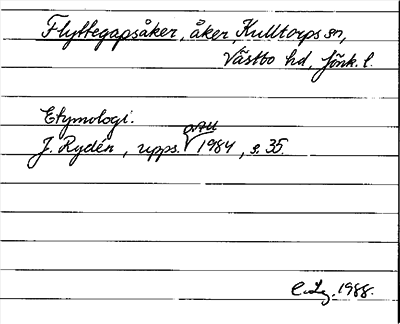 Flyttegapsåker, åker, Kulltorps sn,
Västbo hd, Jönk. l.
Etymologi.
J. Rydén, upps. 1984, s. 35.
1988.